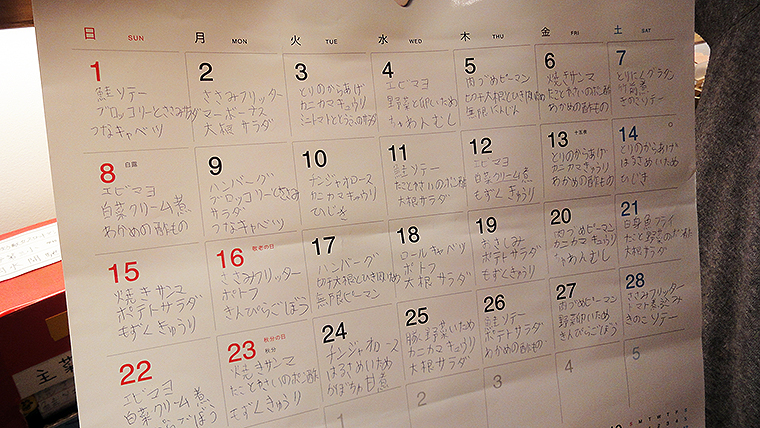 日 SUN 月 MON 火 TUE 水 WED 木 THU 金 FRI 土 SAT
1
鮭ソテー
ブロッコリーとささみサラダ
つなキャベツ
2
ささみフリッター
マーボーナス
大根サラダ
3
とりのからあげ
カニカマきゅうり
ミニトマトととうふのサラダ
4
エビマヨ
野菜と卵いため
ちゃわんむし
5
肉づめピーマン
切干大根とひき肉
無限にんじん
6
焼きサンマ
たことやさいのポン酢
わかめの酢もの
7
とりにくグラタン
竹筒煮
きのこソテー
8 白露
エビマヨ
白菜クリーム煮
わかめの酢もの
9
ハンバーグ
ブロッコリーとささみ
サラダ
つなキャベツ
10
ナンジャオロース
カニカマきゅうり
ひじき
11
鮭ソテー
たことやさいのポン酢
大根サラダ
12
エビマヨ
白菜クリーム煮
もずくきゅうり
13 十五夜
とりのからあげ
カニカマきゅうり
わかめの酢もの
14
とりのからあげ
はるさめいため
ひじき
15
焼きサンマ
ポテトサラダ
もずくきゅうり
16 敬老の日
ささみフリッター
ポトフ
きんぴらごぼう
17
ハンバーグ
切干大根とひき肉いため
無限ピーマン
18
ロールキャベツ
ポトフ
大根サラダ
19
おさしみ
ポテトサラダ
もずくきゅうり
20
肉づめピーマン
カニカマきゅうり
ちゃわんむし
21
白身魚フライ
たこと野菜のポン酢
大根サラダ
22
エビマヨ
白菜クリーム煮
ごぼう
23 秋分の日
秋分
焼きサンマ
たことやさいのポン酢
もずくきゅうり
24
ナンジャオロース
はるさめいため
かぼちゃ甘煮
25
豚野菜いため
カニカマきゅうり
大根サラダ
26
鮭ソテー
ポテトサラダ
わかめの酢もの
27
肉づめピーマン
野菜卵いため
きんぴらごぼう
28
ささみフリッター
トマト煮込み
きのこソテー
1
2
3
4
5
主菜
10 S M T W T F S